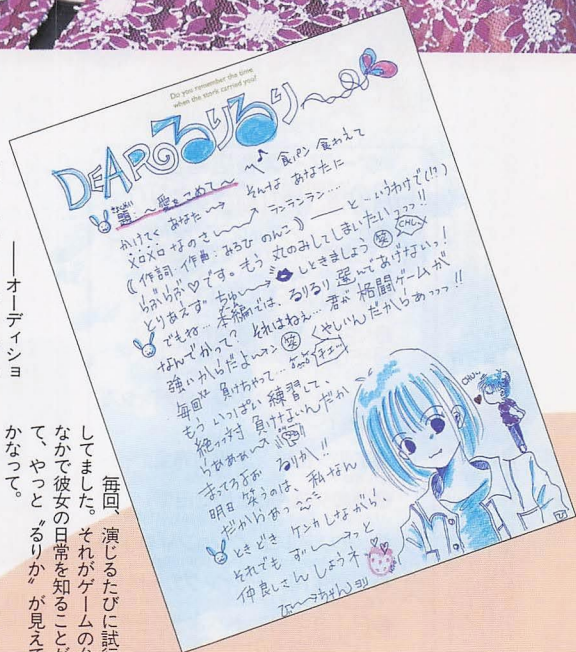 Do you remember the time
when the stork carried you?
DEARるりるり
題:〜愛をこめて〜 ♪ 食パン 食わえて
かけてく あなた〜 そんな あなたに
メロメロ なのさ〜 ランランラン…
(作詞.作曲:みるひ のんこ)―と…いうわけで(!?)
らぶらぶ♡です。もう 丸のみしてしまいたいっっっ!!
とりあえず ちゅ〜 しときましょう(笑) CHU
でもね…本編では、るりるり 選んであげないっ!
なんでかって? それはねぇ…君が 格闘ゲームが
強いからだよ (笑) くやしいんだからあっっっ!!
毎回 負けちゃって…
もう いっぱい 練習して、
絶っっ対 負けないんだか
らあああ
まってろよぉ るりか!!
明日 笑うのは、私なん
だからあっ
ときどき ケンカしながら、
それでも ず〜っと
仲良しさん しようネ
CHU
――オーディショ
毎回、演じるたびに試行
してました。それがゲームの
なかで彼女の日常を知ることが
て、やっと〝るりか〟が見えて
かなって。